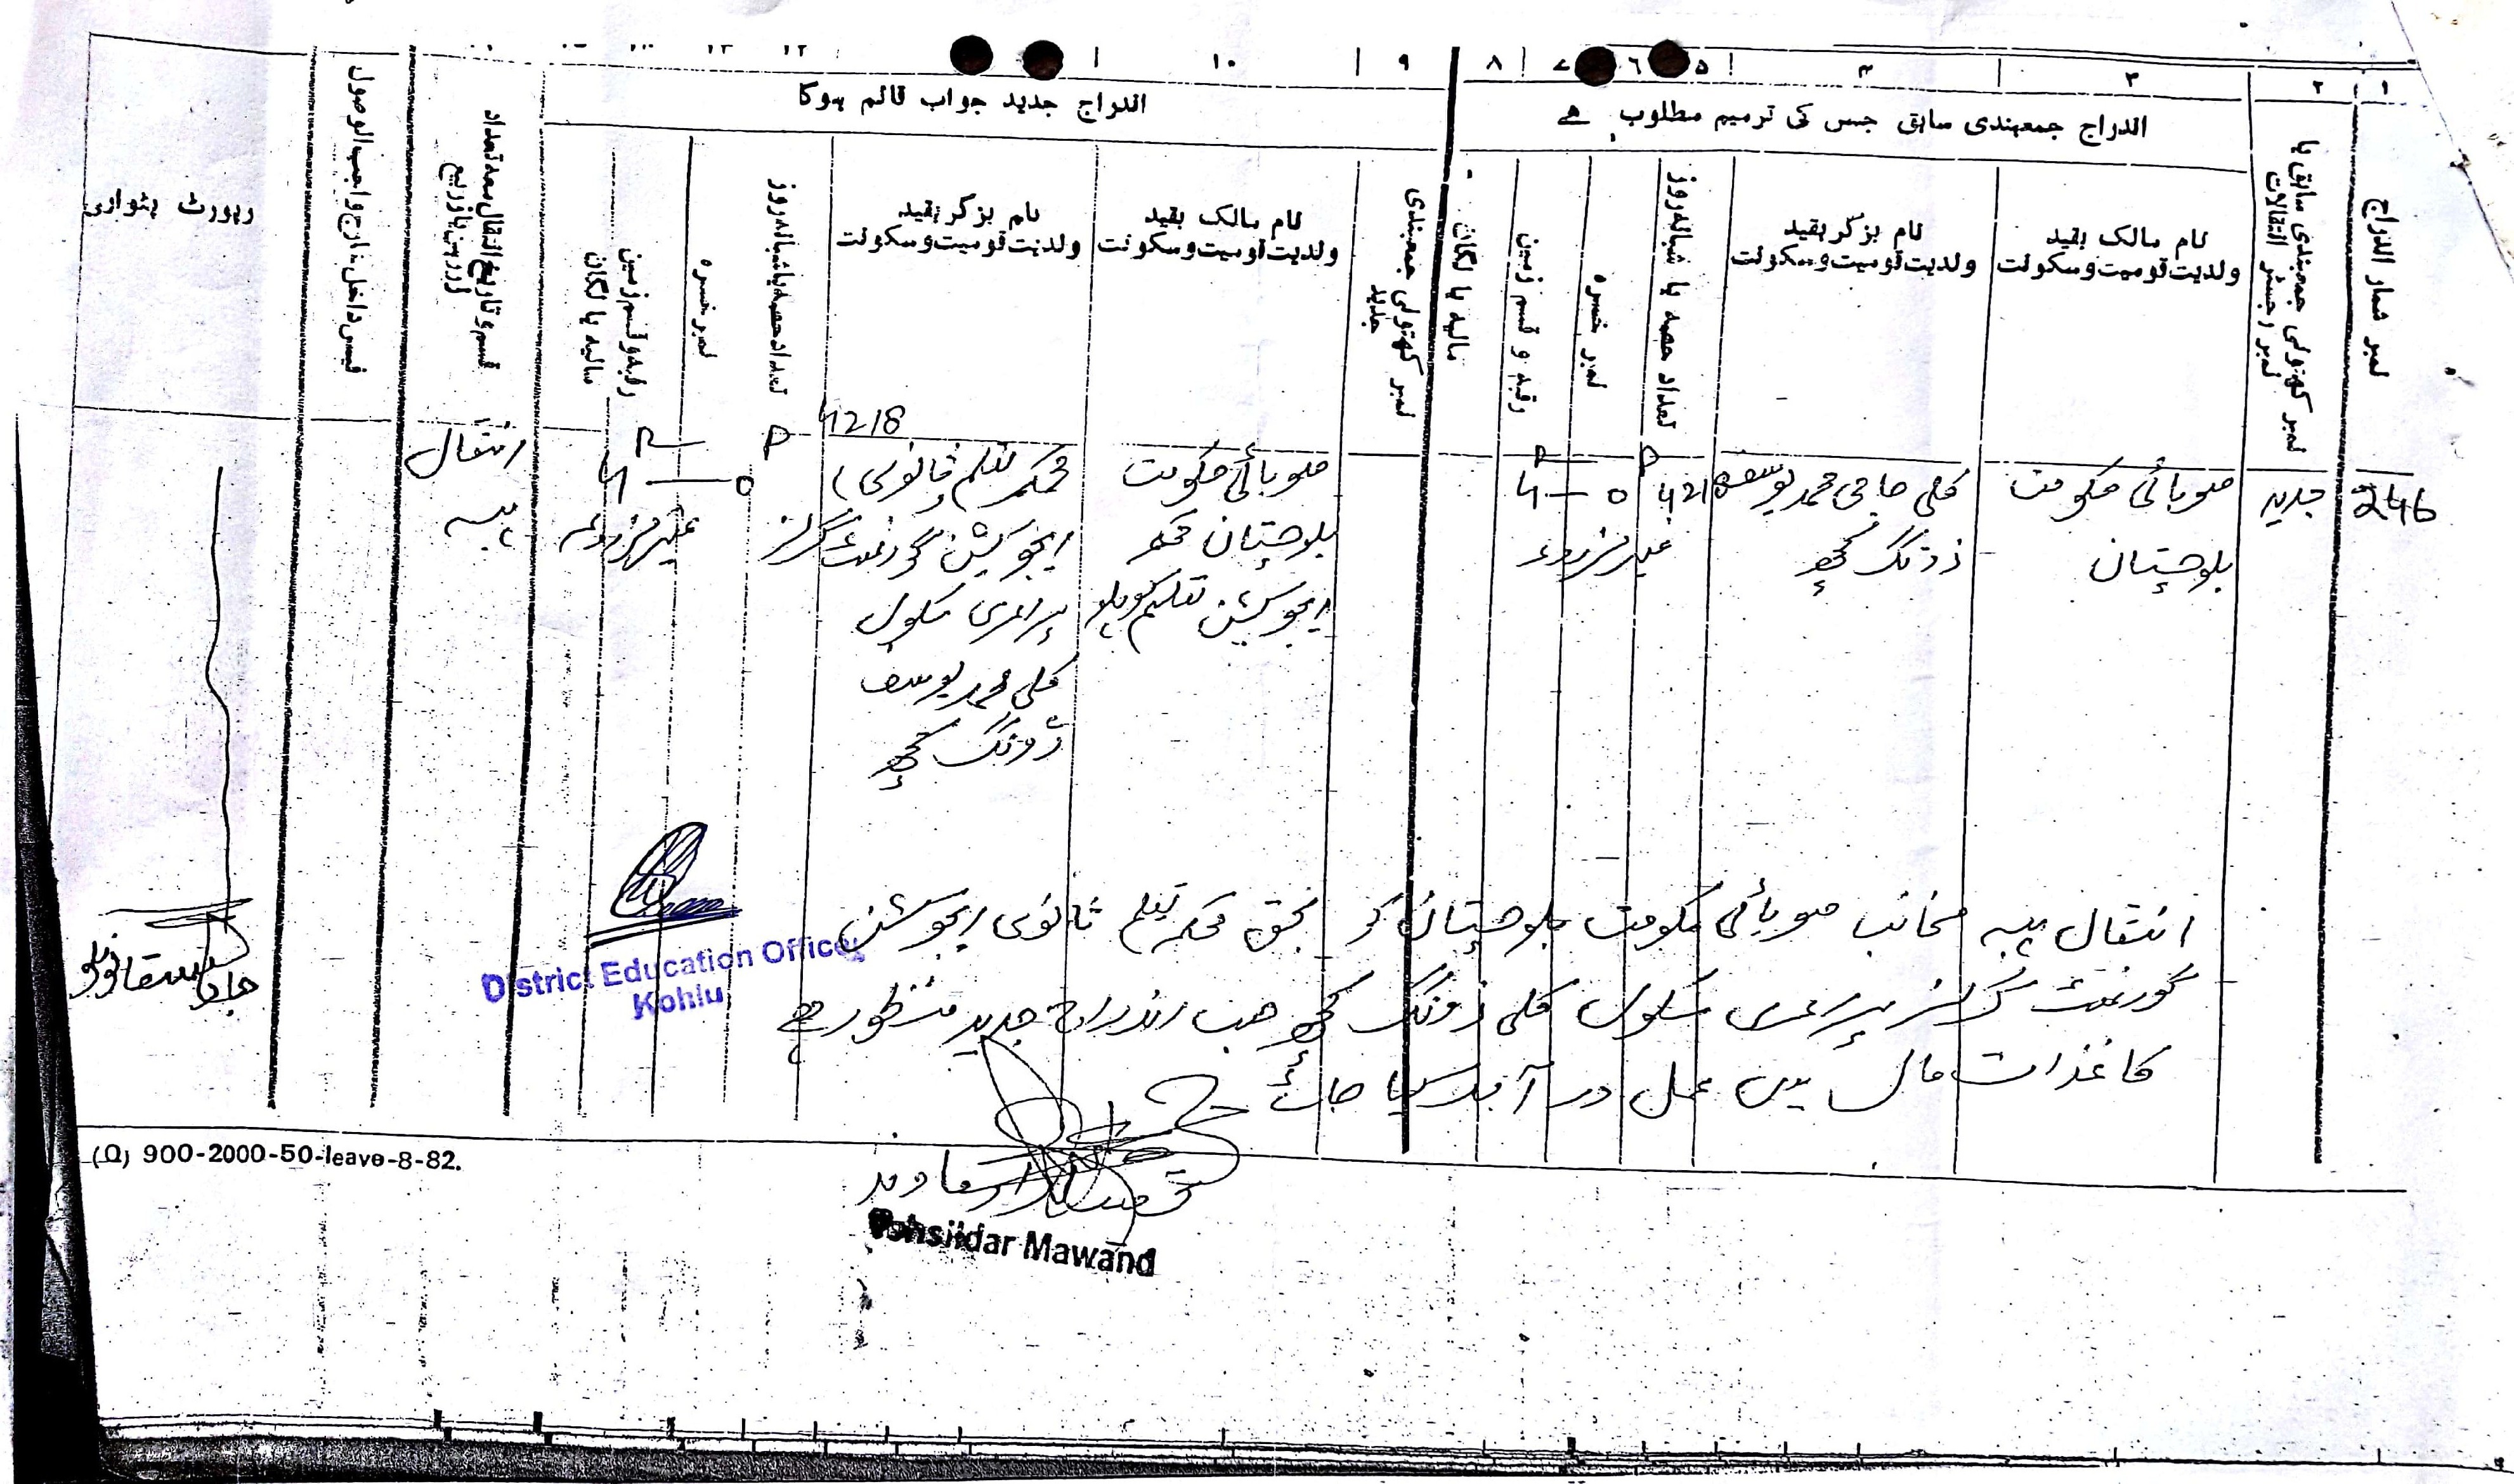 ۱ ۲ ۳ ۴ ۵ ۶ ۷ ۸ ۹ ۱۰ ۱۲ ۱۳
اندراج جمعبندی سابق جس کی ترمیم مطلوب ہے
اندراج جدید جواب قائم ہوگا
نمبر شمار اندراج
نمبر کھتونی جمعبندی سابق یا
نمبر رجسٹر انتقالات
نام مالک بقید
ولدیت قومیت و سکونت
نام بزگر بقید
ولدیت قومیت و سکونت
تعداد حصہ یا شبانہ روز
نمبر خسرہ
رقبہ و قسم زمین
مالیہ یا لگان
نمبر کھتونی جمعبندی
جدید
نام مالک بقید
ولدیت قومیت و سکونت
نام بزگر بقید
ولدیت قومیت و سکونت
تعداد حصہ یا شبانہ روز
نمبر خسرہ
رقبہ و قسم زمین
مالیہ یا لگان
قسم و تاریخ انتقال معہ تعداد
زر رہن یا زر بیع
فیس داخل خارج واجب الوصول
رپورٹ پٹواری
246
جدید
صوبائی حکومت
بلوچستان
کلی حاجی محمد یوسف
ژونگ کچھ
4218
4—0
غیر مزروعہ
صوبائی حکومت
بلوچستان محکمہ
ایجوکیشن تعلیم کوہلو
4218
محکمہ تعلیم ثانوی
ایجوکیشن گورنمنٹ گرلز
پرائمری سکول
کلی محمد یوسف
ژونگ کچھ
4—0
غیر مزروعہ
انتقال
ہبہ
انتقال ہبہ منجانب صوبائی حکومت بلوچستان کو بحق محکمہ تعلیم ثانوی ایجوکیشن
گورنمنٹ گرلز پرائمری سکول کلی ژونگ کچھ حسب اندراج جدید منظور ہے
کاغذات مال میں عمل درآمد کیا جائے
District Education Officer
Kohlu
تحصیلدار ماوند
Tehsildar Mawand
(Q) 900-2000-50-leave-8-82.